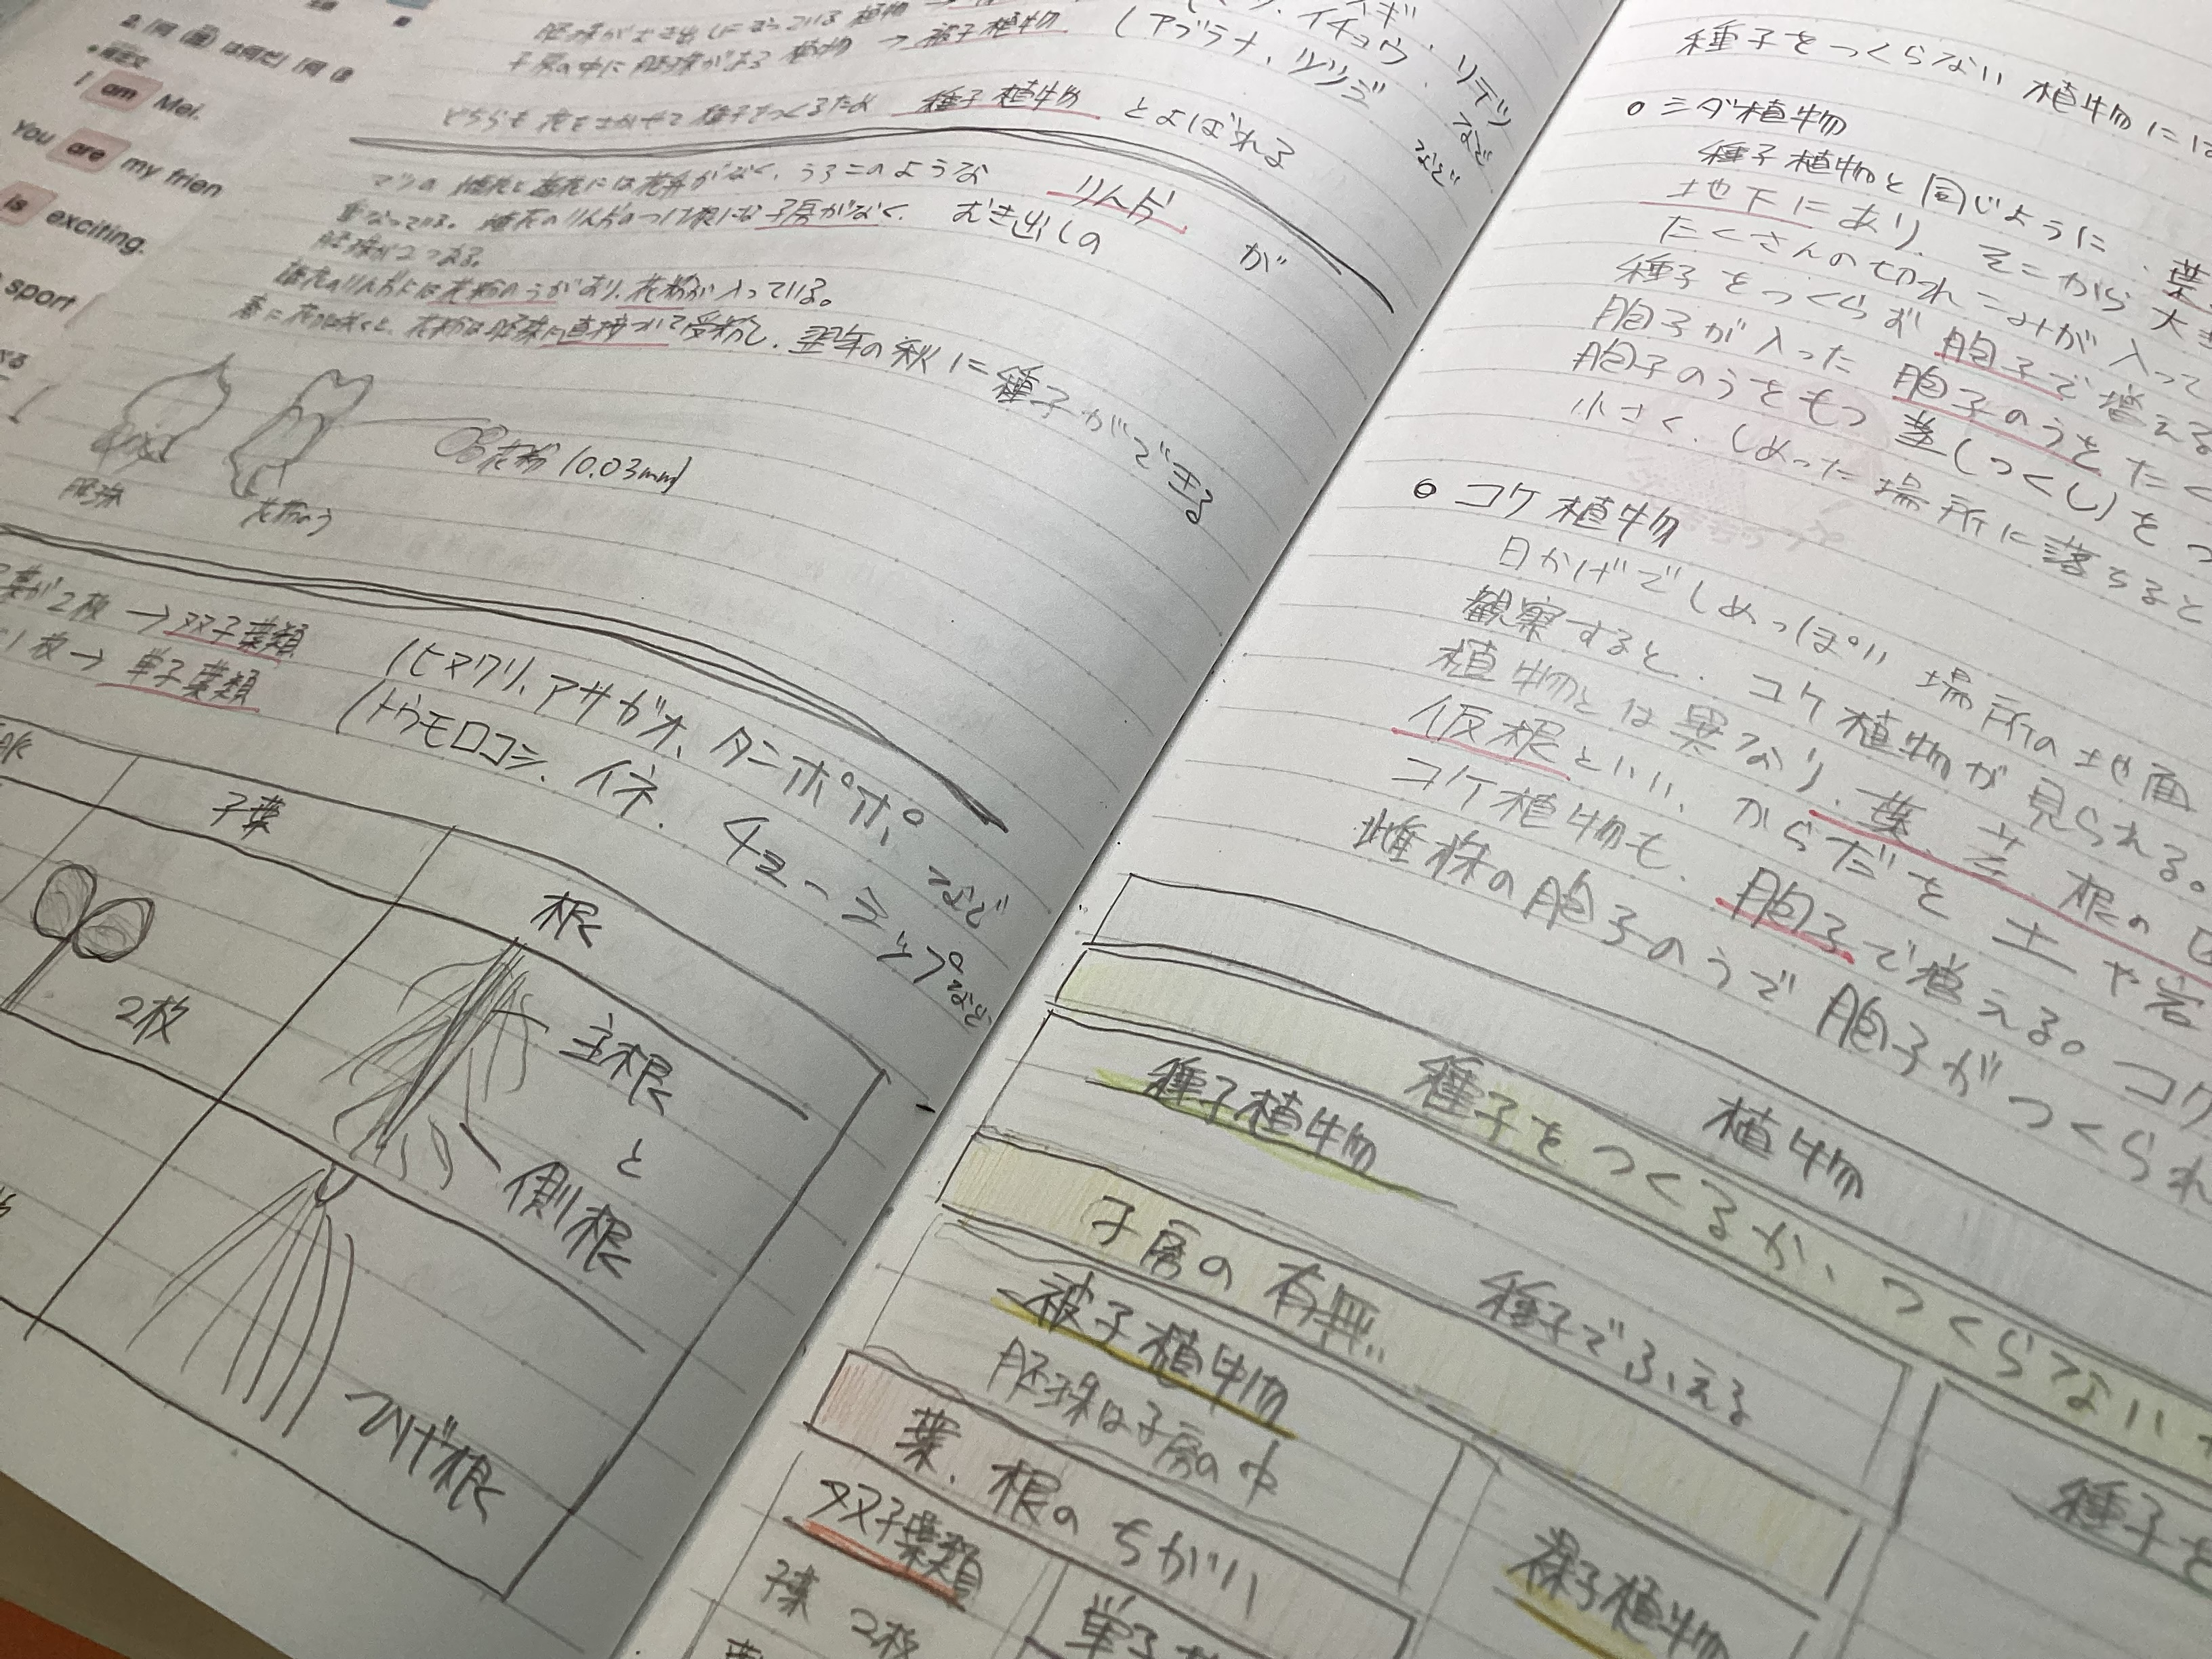 I am Mei.
You are my frien
is exciting.
sport
胚珠がむき出しになっている植物 →
イチョウ、
リテツ など
子房の中に胚珠がある植物 → 被子植物 (アブラナ、ツツジ など
どちらも花をさかせて種子をつくるため 種子植物 とよばれる
マツの雌花と雄花には花弁がなく、うろこのような りん片 が
重なっている。雌花のりん片のつけ根には子房がなく、むき出しの
胚珠が2つある。
雄花のりん片には花粉のうがあり、花粉が入っている。
春に花がさくと、花粉は胚珠に直接ついて受粉し、翌年の秋に種子ができる
花粉 (0.03mm)
胚珠
花粉のう
葉が2枚 → 双子葉類 (ヒマワリ、アサガオ、タンポポ、など
1枚 → 単子葉類 (トウモロコシ、イネ、チューリップなど
根
子葉
根
2枚
主根
と
側根
ひげ根
種子をつくらない植物には
シダ植物
種子植物と同じように、葉
地下にあり、そこから
たくさんの切れこみが入って
種子をつくらず胞子で増える
胞子が入った胞子のうをたく
胞子のうをもつ茎(つくし)をつ
小さく、しめった場所に落ちると
コケ植物
日かげでしめっぽい場所の地面
観察すると、コケ植物が見られる。
植物とは異なり、葉、茎、根の区
仮根といい、からだを土や岩
コケ植物も、胞子で増える。コケ
雌株の胞子のうで胞子がつくられ
植物
種子をつくるか、つくらないか
種子植物
種子でふえる
種子を
子房の有無
被子植物
胚珠は子房の中
裸子植物
葉、根のちがい
双子葉類
子葉 2枚
単子